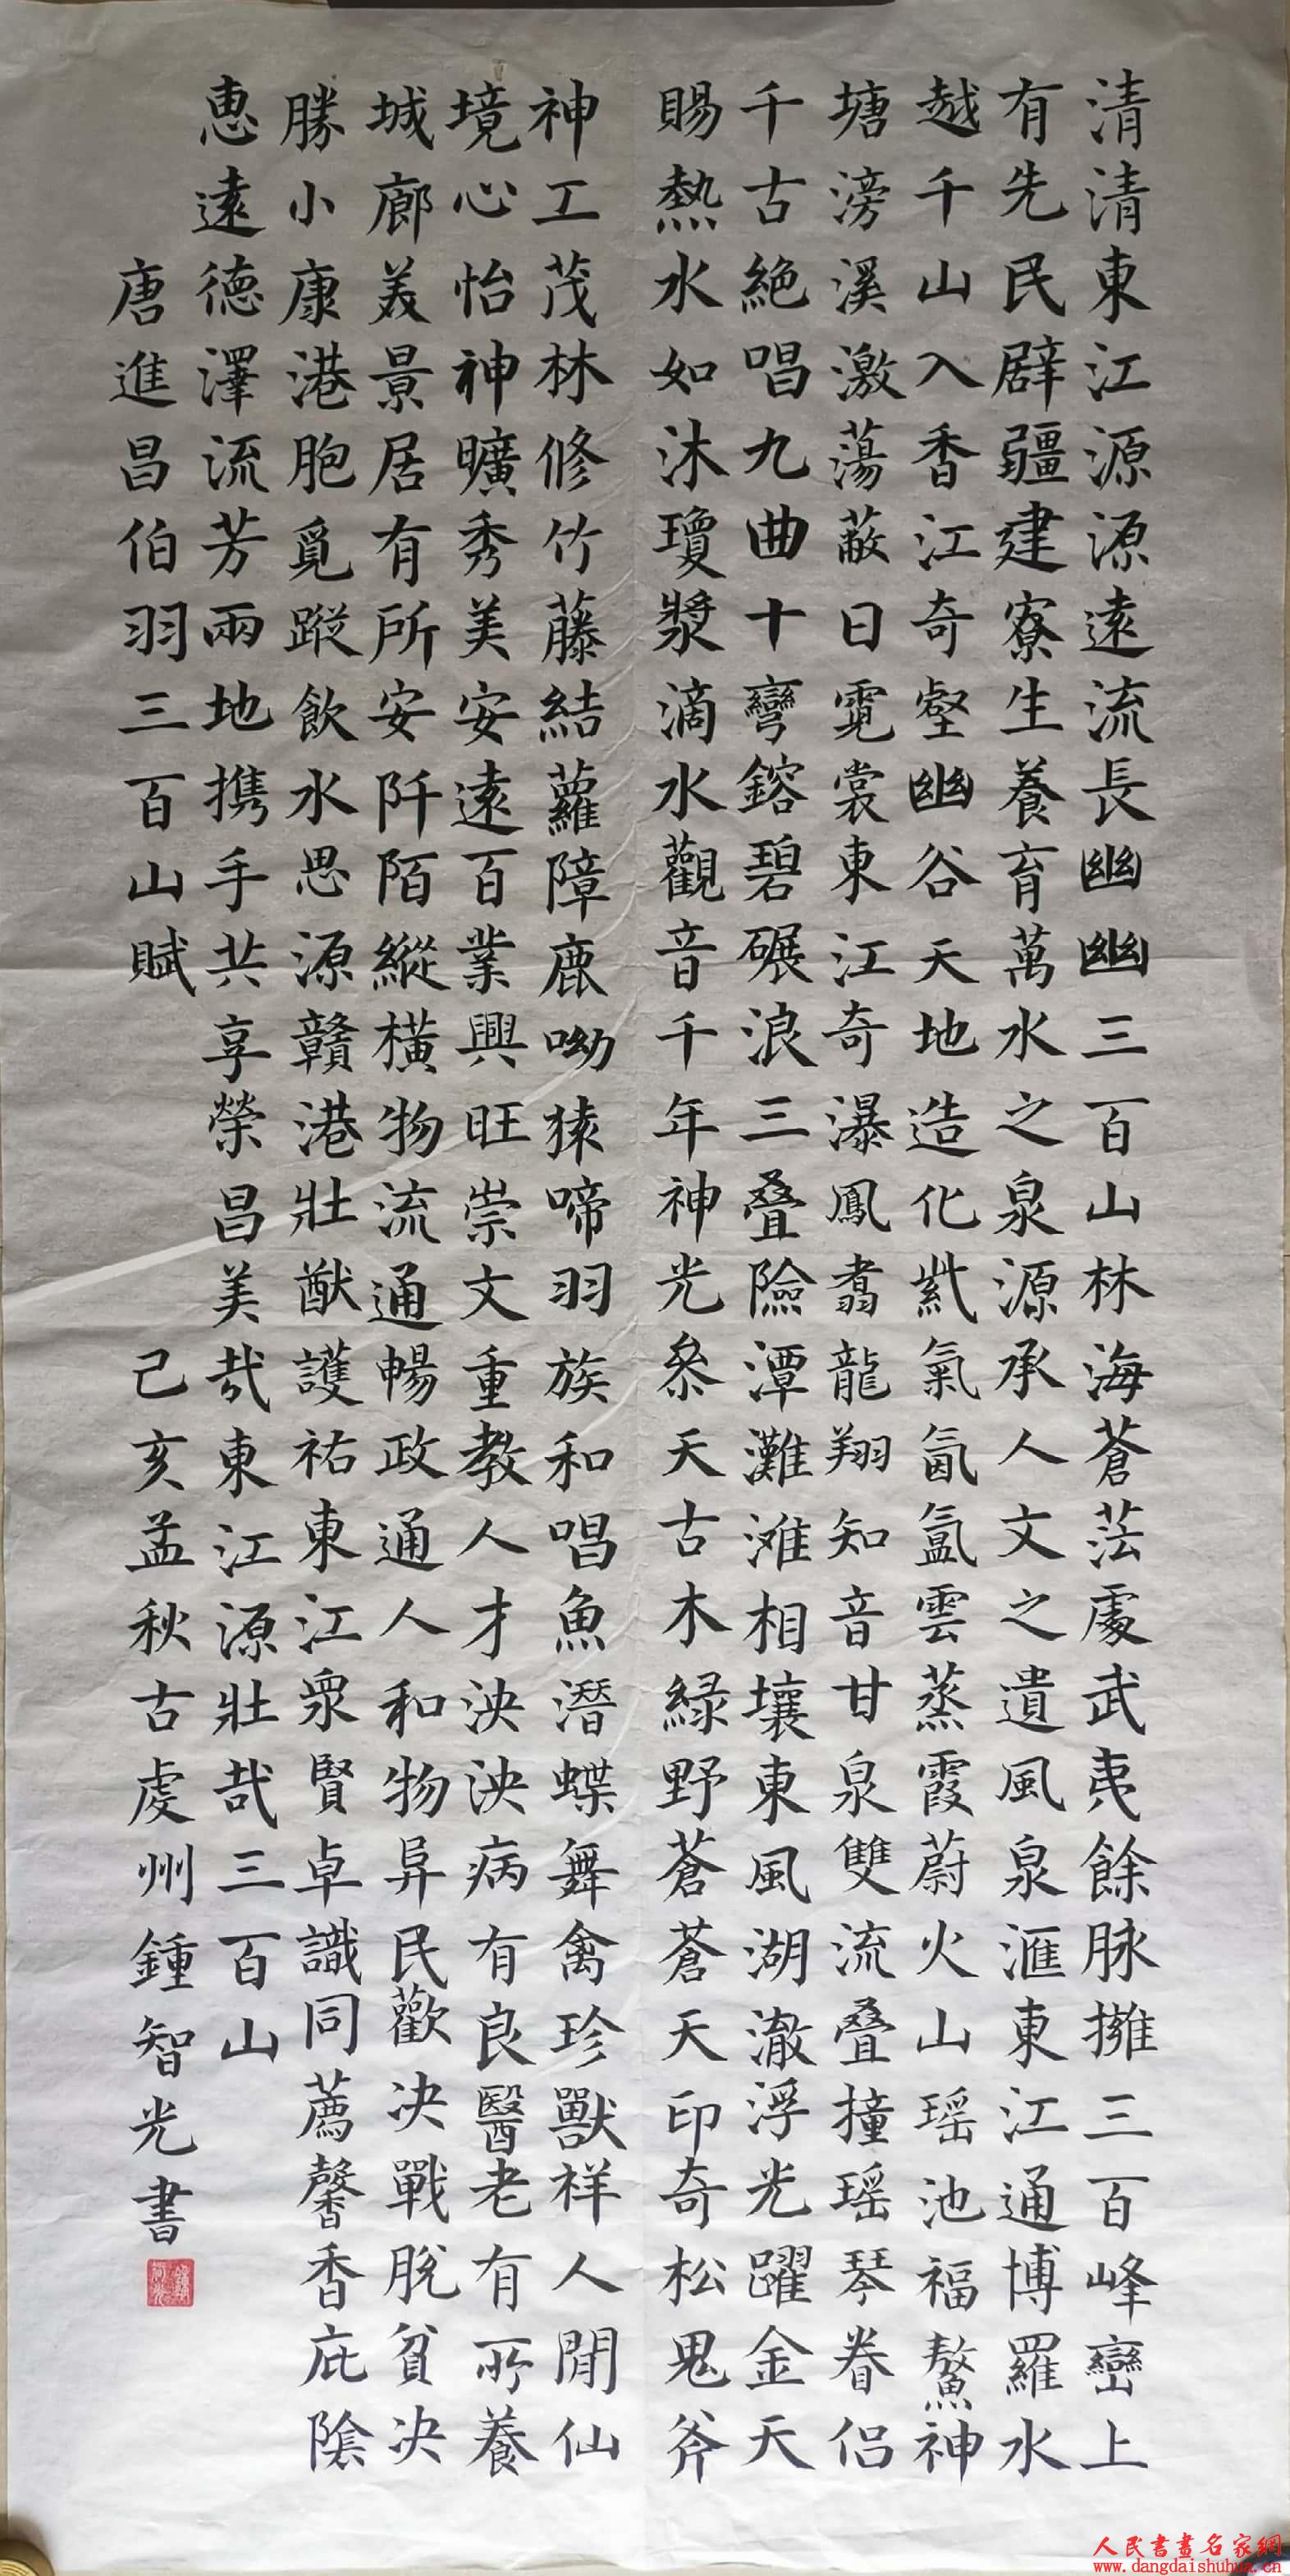 清清東江源源遠流長幽幽三百山林海蒼茫處武夷餘脉擁三百峰巒上
有先民辟疆建寮生養育萬水之泉源承人文之遺風泉滙東江通博羅水
越千山入香江奇壑幽谷天地造化紫氣氤氲雲蒸霞蔚火山瑶池福鰲神
塘滂溪激蕩蔽日霓裳東江奇瀑鳳翥龍翔知音甘泉雙流叠撞瑶琴眷侣
千古絶唱九曲十彎鎔碧碾浪三叠險潭灘滩相壤東風湖澈浮光躍金天
賜熱水如沐瓊漿滴水觀音千年神光叅天古木緑野蒼蒼天印奇松鬼斧
神工茂林修竹藤結蘿障鹿呦猿啼羽族和唱魚潛蝶舞禽珍獸祥人閒仙
境心怡神曠秀美安遠百業興旺崇文重教人才泱泱病有良醫老有所養
城廊美景居有所安阡陌縱横物流通暢政通人和物阜民歡决戰脱貧决
勝小康港胞覓蹤飲水思源贛港壯猷護祐東江衆賢卓識同薦馨香庇隂
惠遠德澤流芳兩地携手共享榮昌美哉東江源壯哉三百山
唐進昌伯羽三百山賦 己亥孟秋古虔州鍾智光書
人民書畫名家網
www.dangdaishuhua.cn